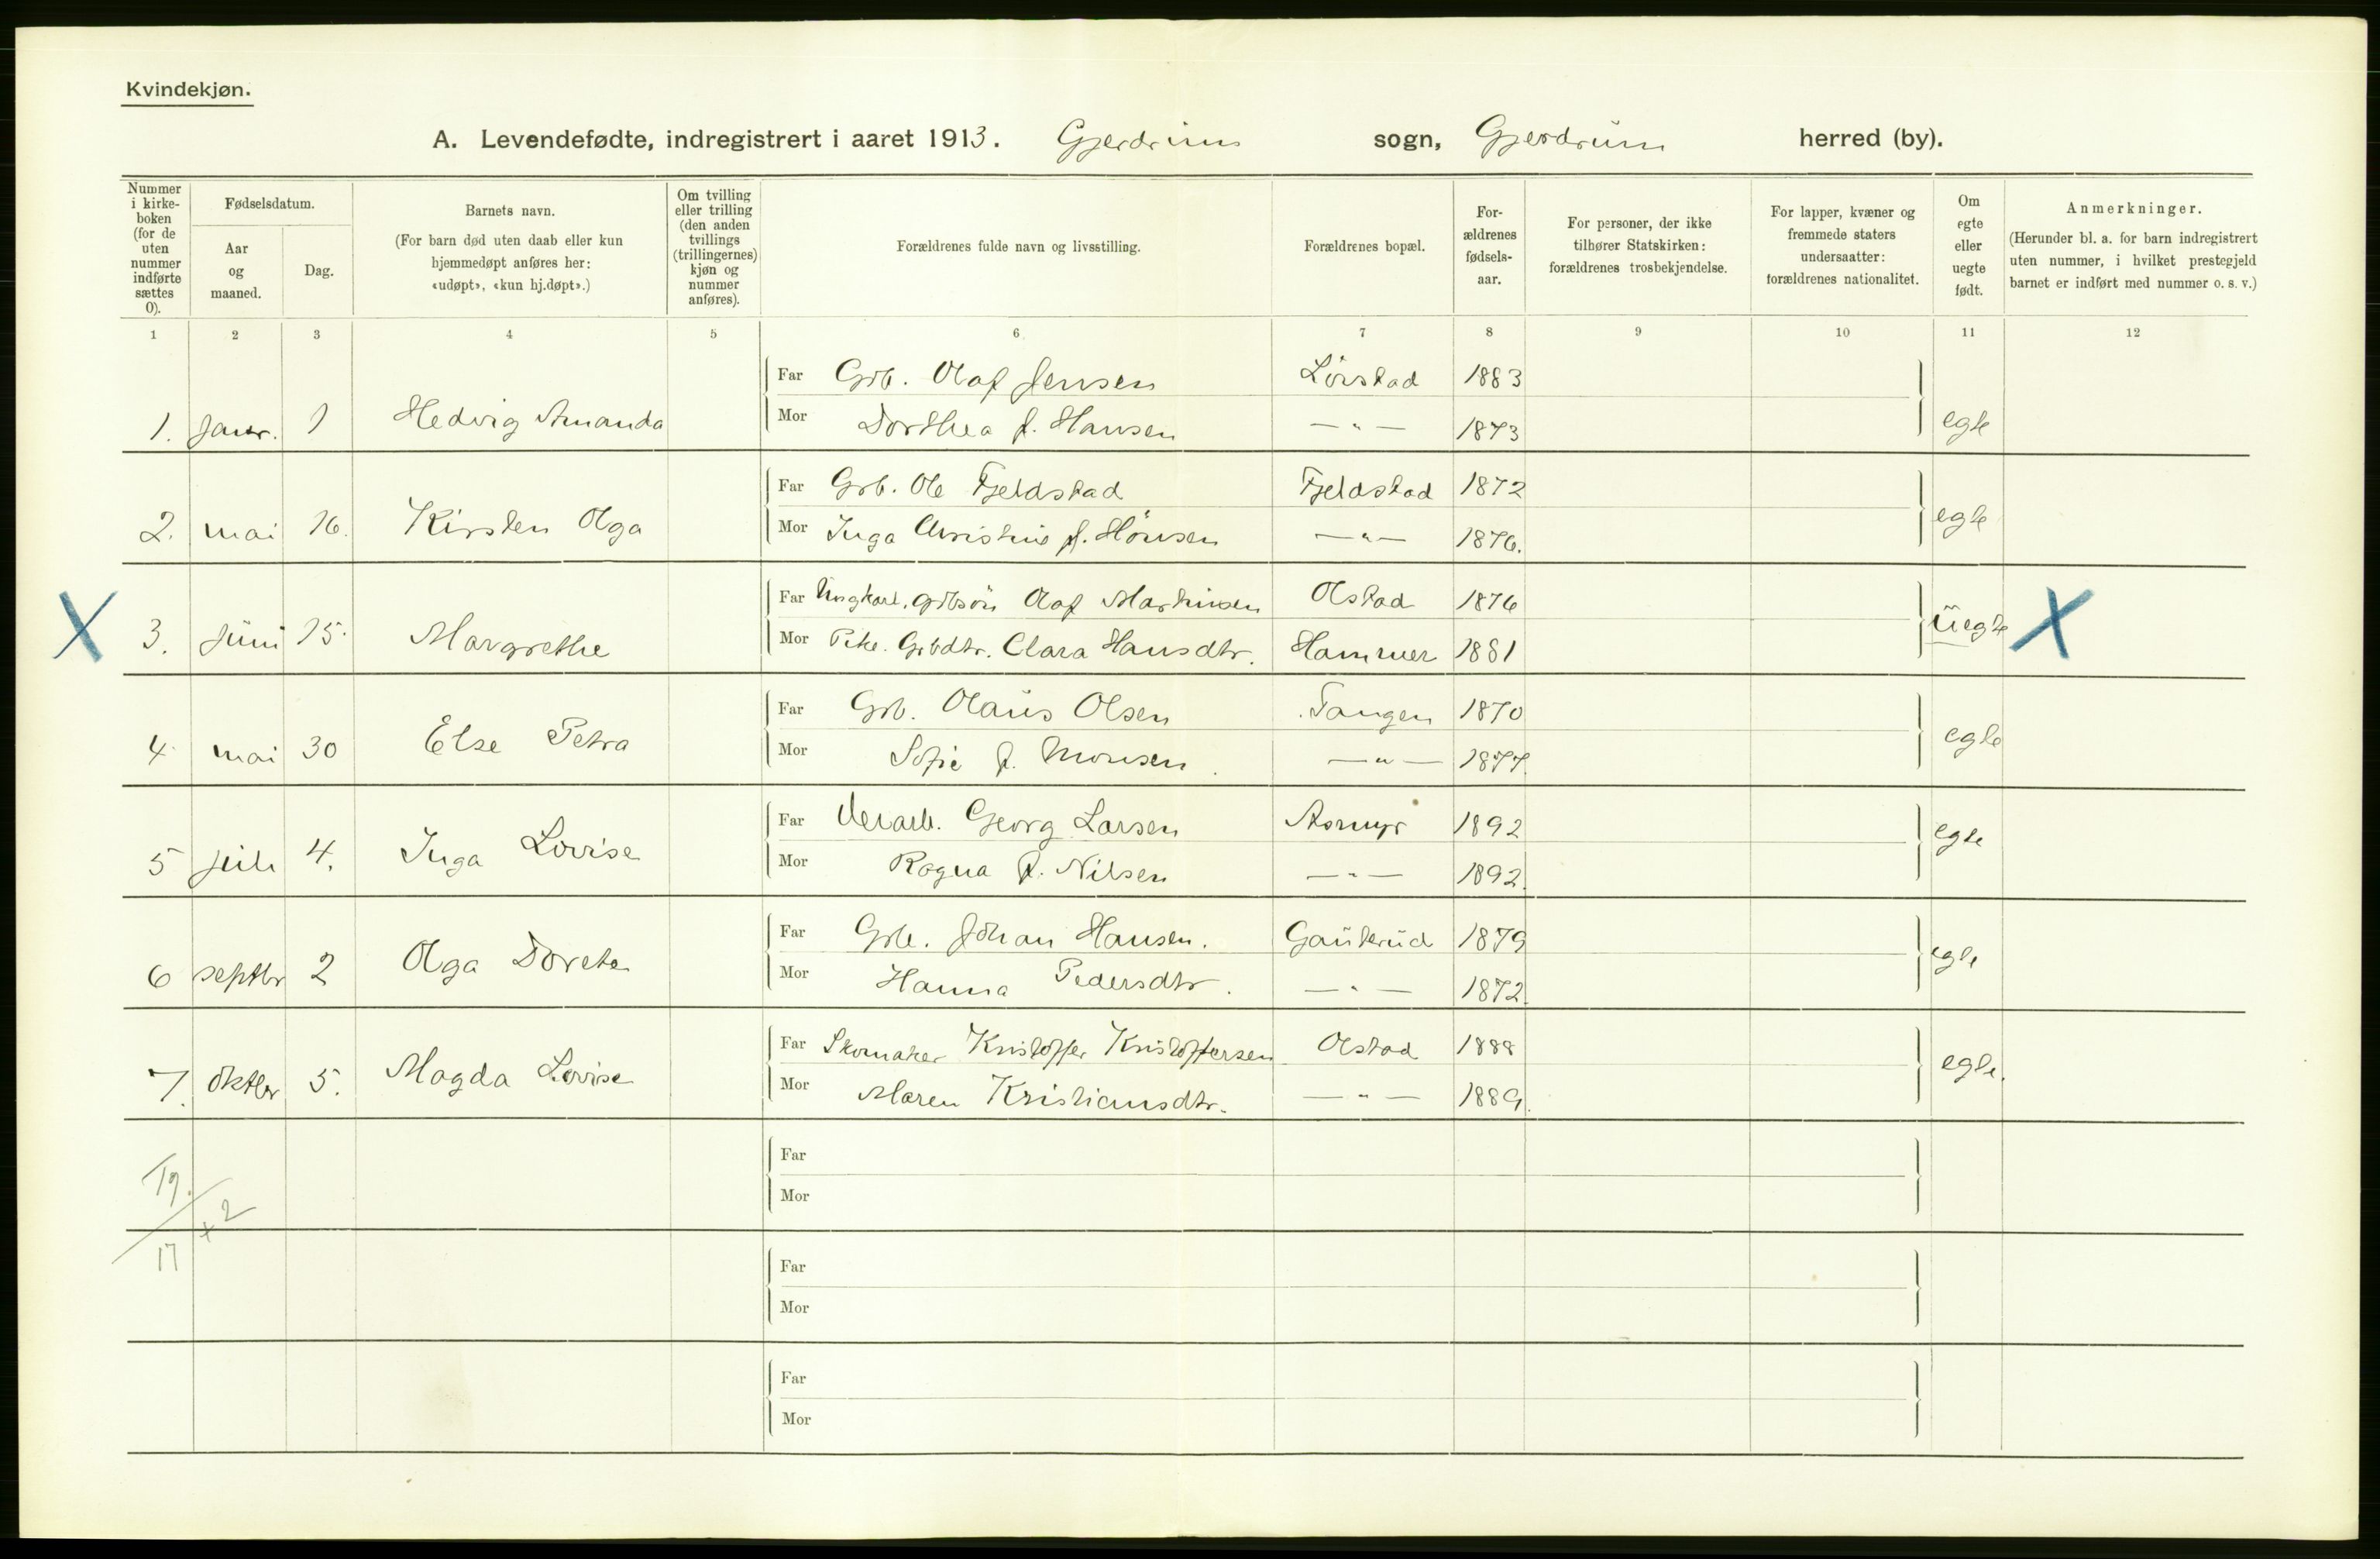 Kvindekjøn.
A. Levendefødte, indregistrert i aaret 1913. Gjerdrum sogn, Gjerdrum herred (by).
Nummer i kirke-boken (for de uten nummer indførte sættes 0).
Fødselsdatum.
Aar og maaned.
Dag.
Barnets navn.
(For barn død uten daab eller kun hjemmedøpt anføres her: «udøpt», «kun hj.døpt».)
Om tvilling eller trilling (den anden tvillings (trillingernes) kjøn og nummer anføres).
Forældrenes fulde navn og livsstilling.
Forældrenes bopæl.
For-ældrenes fødsels-aar.
For personer, der ikke tilhører Statskirken: forældrenes trosbekjendelse.
For lapper, kvæner og fremmede staters undersaatter: forældrenes nationalitet.
Om egte eller uegte født.
Anmerkninger.
(Herunder bl. a. for barn indregistrert uten nummer, i hvilket prestegjeld barnet er indført med nummer o. s. v.)
1 2 3 4 5 6 7 8 9 10 11 12
Far Grb. Olaf Jensen Lörstad 1883
1. Janr. 1 Hedvig Amanda Mor Dorthea f. Hansen — " — 1873 egte
Far Grb. Ole Fjeldstad Fjeldstad 1872
2. mai 16. Kirsten Olga Mor Inga Christine f. Hönsen — " — 1876. egte
Far Ungkarl, grbsön Olaf Martinsen Olstad 1876
X 3. Juni 15. Margrethe Mor Pike. Grbdtr. Clara Hansdtr. Hammer 1881 uegte X
Far Grb. Olaus Olsen Tangen 1870
4. mai 30 Else Petra Mor Sofie f. Monsen — " — 1877. egte
Far Georg Larsen Asmyr 1892
5 juli 4. Inga Lovise Mor Ragna f. Nilsen — " — 1892. egte
Far Grb. Johan Hansen. Gauterud 1879
6 septbr 2 Olga Dorete Mor Hanna Pedersdtr. — " — 1872. egte
Far Skomaker Kristoffer Kristoffersen Olstad 1888
7. oktbr 5. Magda Lovise Mor Maren Kristiansdtr. — " — 1889. egte.
Far
19.
Mor
+2
Far
17
Mor
Far
Mor